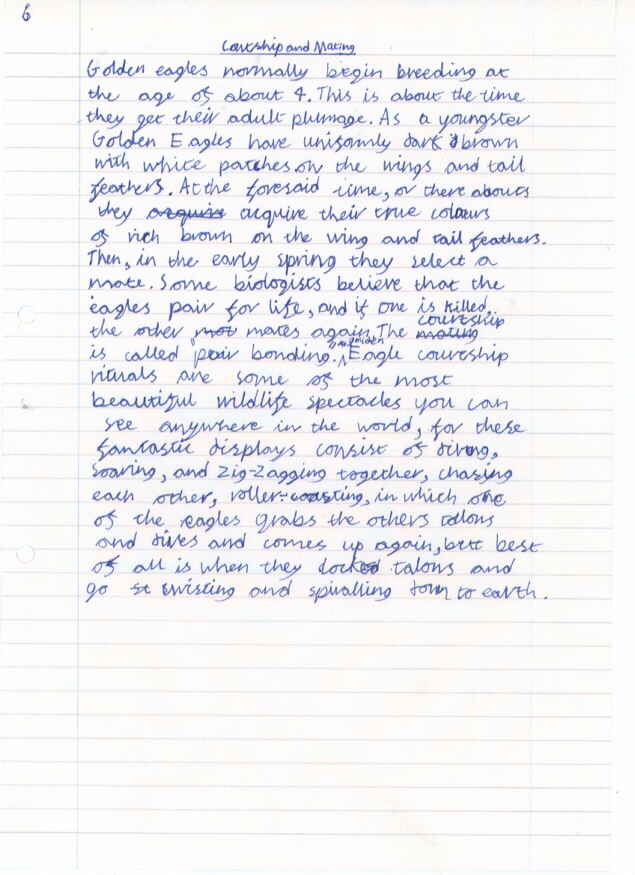 6
Courtship and Mating
Golden eagles normally begin breeding at
the age of about 4. This is about the time
they get their adult plumage. As a youngster
Golden Eagles have uniformly dark brown
with white patches on the wings and tail
feathers. At the foresaid time, or there abouts
they acquire acquire their true colours
of rich brown on the wing and tail feathers.
Then, in the early spring they select a
mate. Some biologists believe that the
eagles pair for life, and if one is killed,
the other not mates again. The mating courtship
is called pair bonding. Golden Eagle courtship
rituals are some of the most
beautiful wildlife spectacles you can
see anywhere in the world, for these
fantastic displays consist of diving,
soaring, and zig-zagging together, chasing
each other, roller-coasting, in which one
of the eagles grabs the others talons
and dives and comes up again, but best
of all is when they locked talons and
go st twisting and spiralling down to earth.